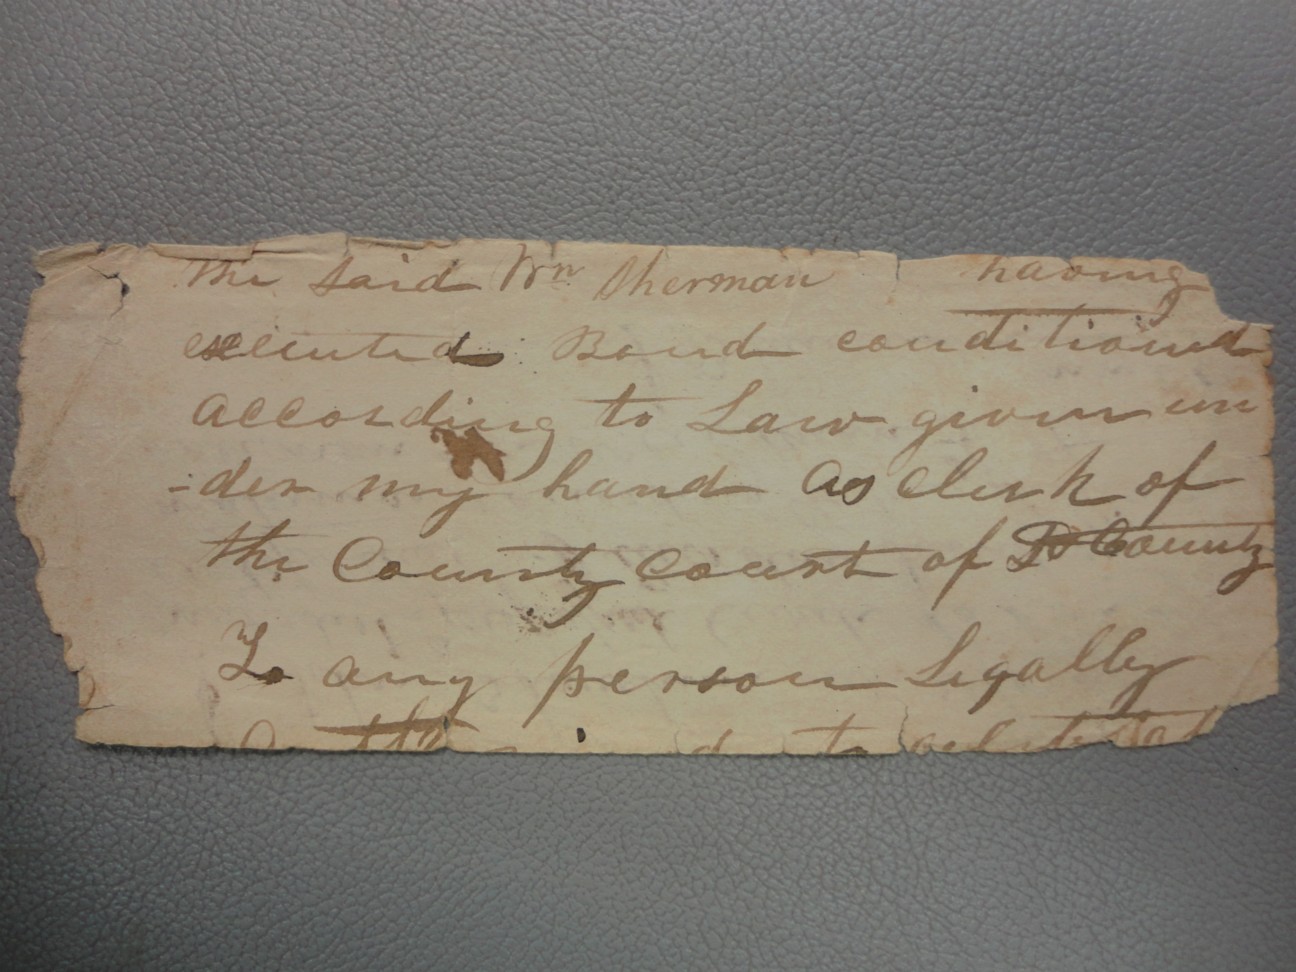 The said Wm Sherman having
executed Bond conditioned
according to Law given un
-der my hand as clerk of
the County Court of County
To any person Legally
to